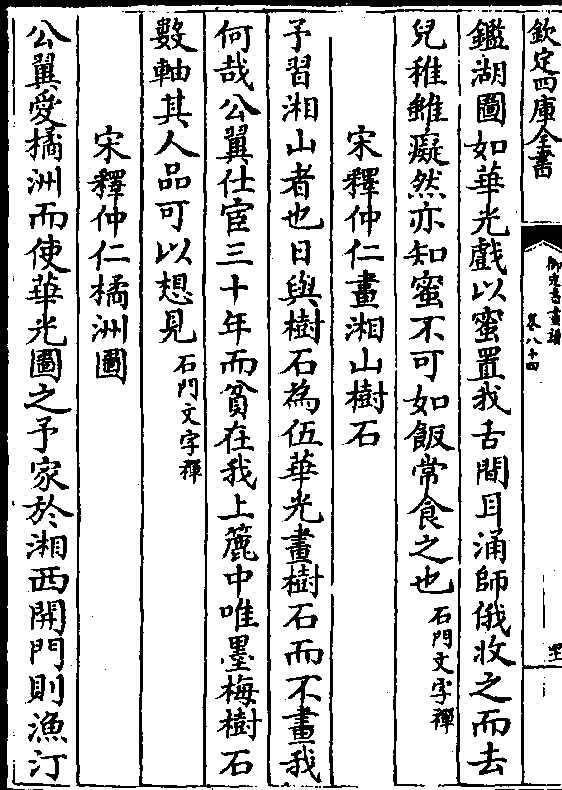 欽定四庫全書
御定書畫譜
卷八十四
鑑湖圖如華光戲以蜜置我舌間耳涌師俄收之而去
兒稚雖癡然亦知蜜不可如飯常食之也石門文字禪
宋釋仲仁畫湘山樹石
予習湘山者也日與樹石為伍華光畫樹石而不畫我
何哉公翼仕宦三十年而貧在我上麓中唯墨梅樹石
數軸其人品可以想見石門文字禪
宋釋仲仁橘洲圖
公翼愛橘洲而使華光圖之予家於湘西開門則漁汀